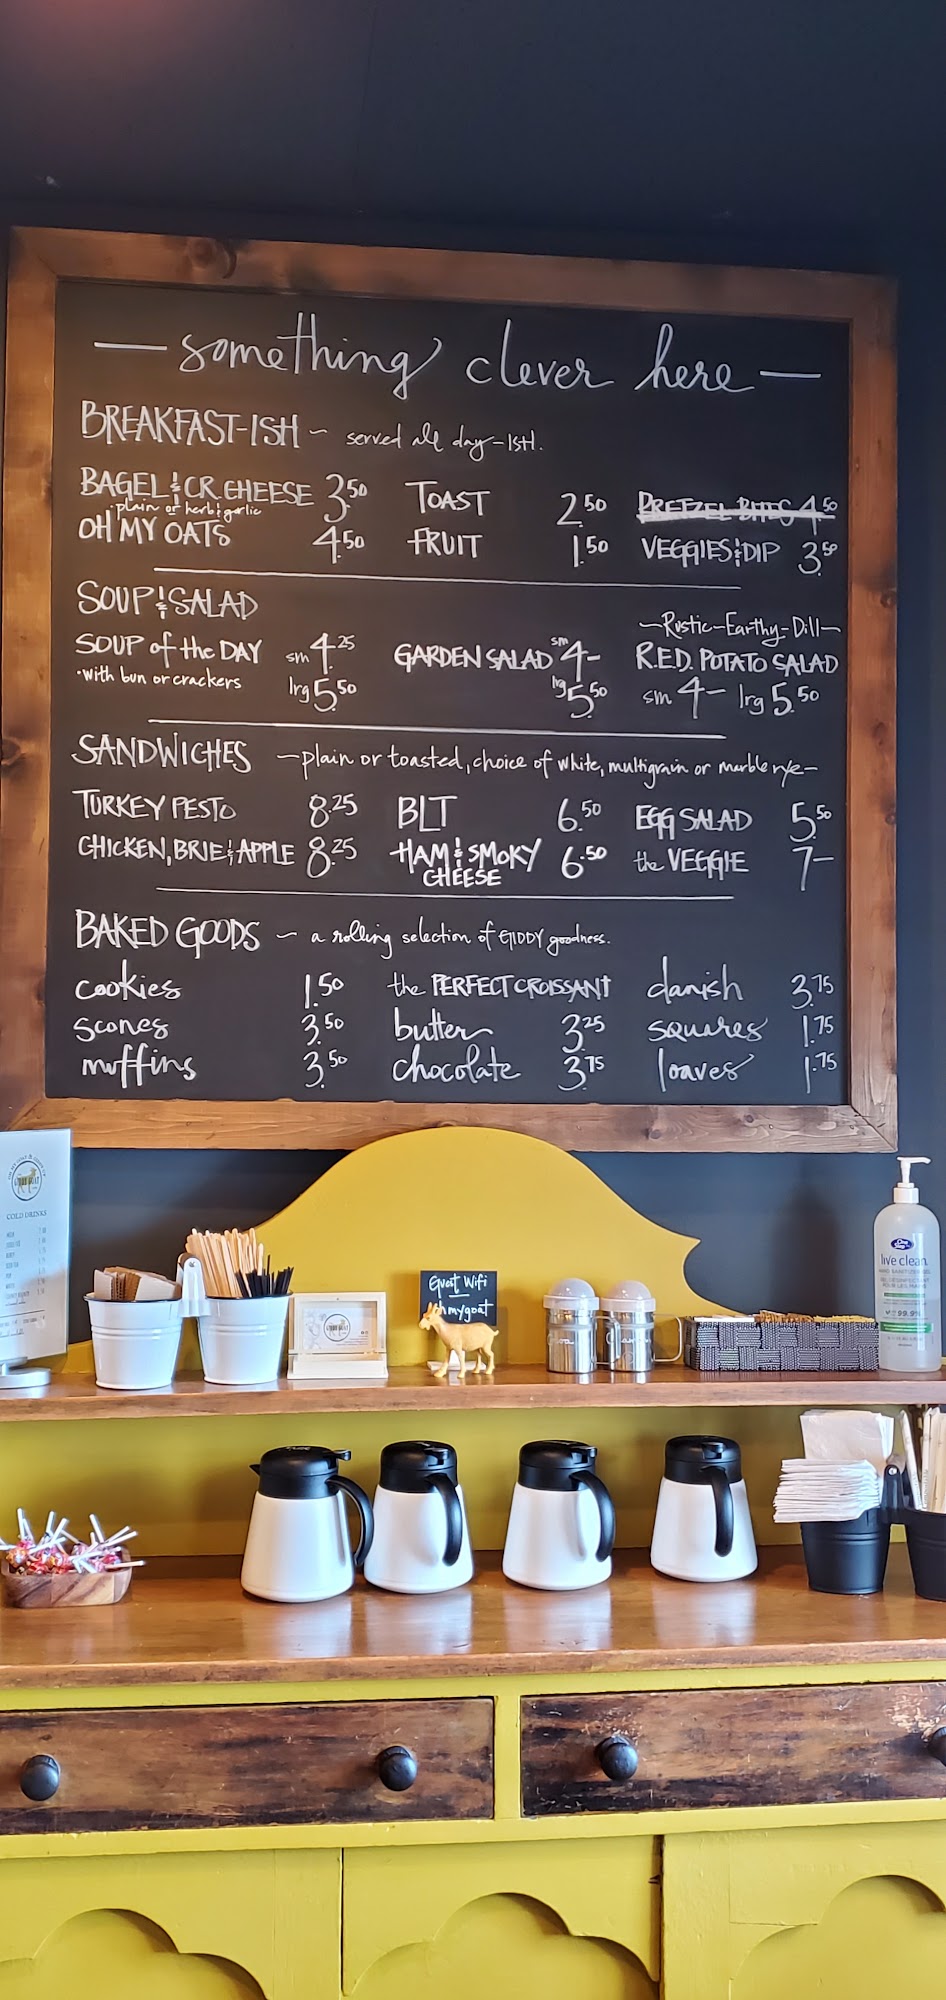 — something clever here —
BREAKFAST-ISH ~ served all day-ISH.
BAGEL & CR. CHEESE 3.50 TOAST 2.50 PRETZEL BITES 4.50
plain or herb & garlic
OH MY OATS 4.50 FRUIT 1.50 VEGGIES & DIP 3.50
SOUP & SALAD
~Rustic-Earthy-Dill~
SOUP of the DAY sm 4.25 GARDEN SALAD sm 4- R.E.D. POTATO SALAD
·with bun or crackers lrg 5.50 lrg 5.50 sm 4- lrg 5.50
SANDWICHES ~plain or toasted, choice of white, multigrain or marble rye~
TURKEY PESTO 8.25 BLT 6.50 EGG SALAD 5.50
CHICKEN, BRIE & APPLE 8.25 HAM & SMOKY 6.50 the VEGGIE 7-
CHEESE
BAKED GOODS ~ a rolling selection of GIDDY goodness.
cookies 1.50 the PERFECT CROISSANT danish 3.75
scones 3.50 butter 3.25 squares 1.75
muffins 3.50 chocolate 3.75 loaves 1.75
GIDDY GOAT
COLD DRINKS
Guest Wifi
ohmygoat
One
live clean
HAND SANITIZER GEL
99.9%